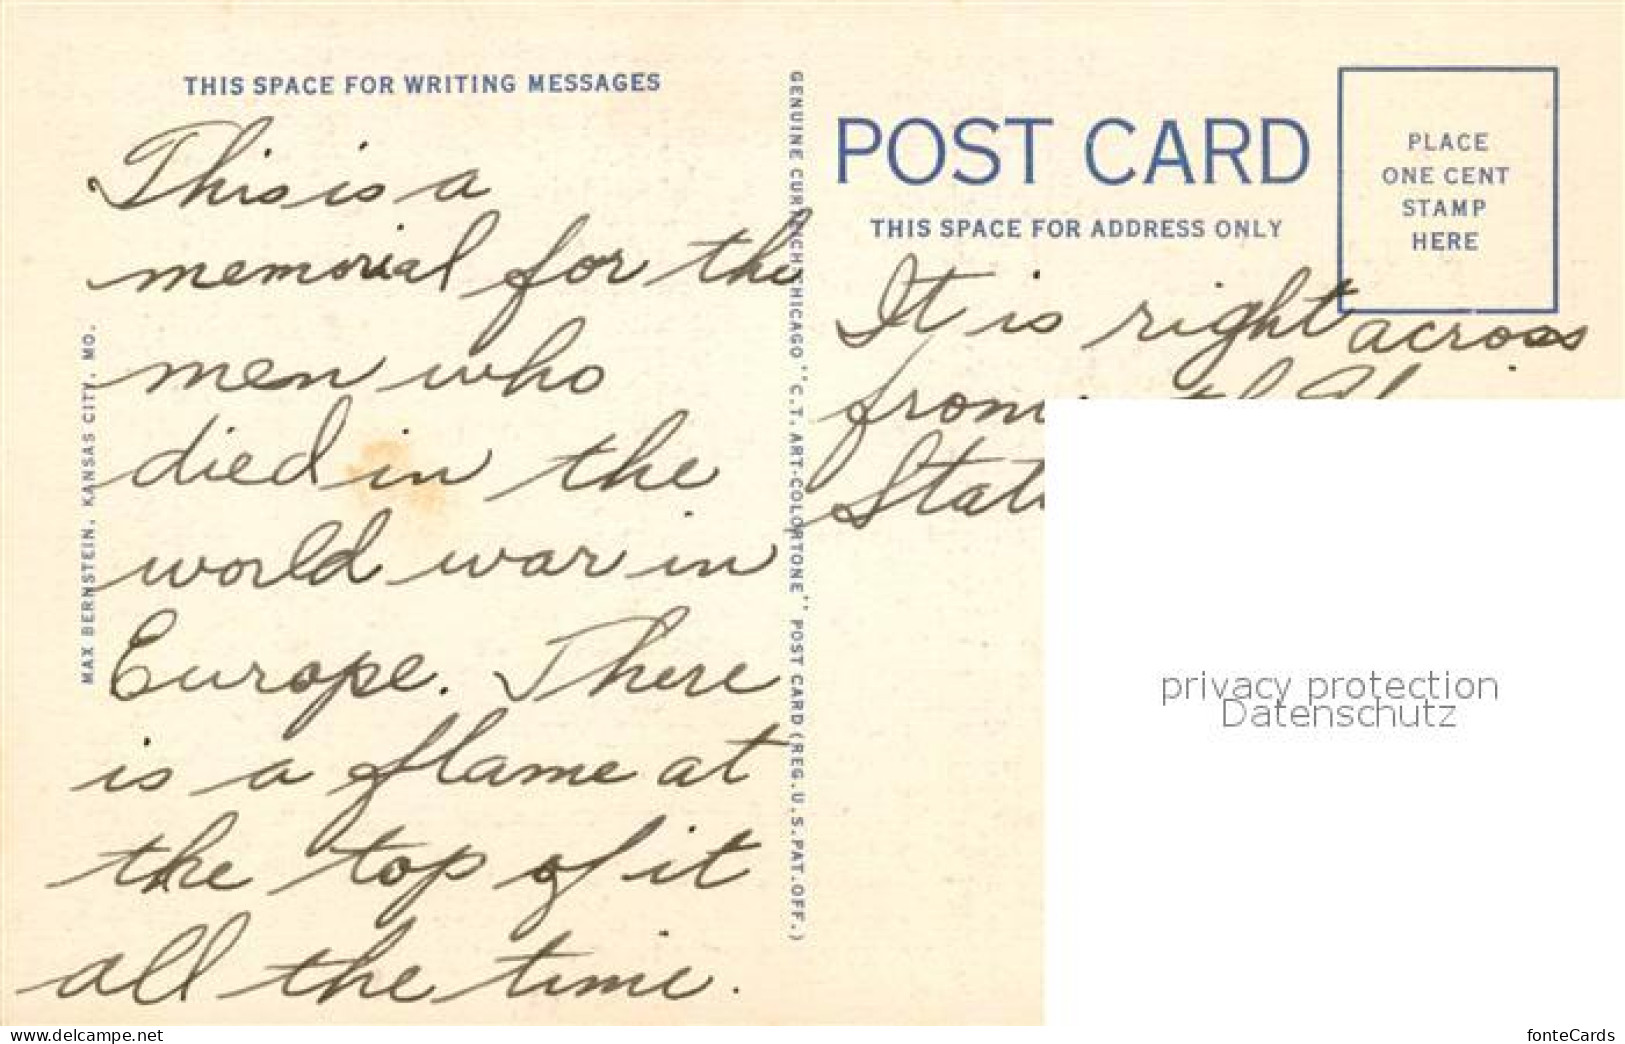 THIS SPACE FOR WRITING MESSAGES
This is a
memorial for the
men who
died in the
world war in
Europe. There
is a flame at
the top of it
all the time.
MAX BERNSTEIN, KANSAS CITY, MO.
GENUINE CURTEICH-CHICAGO "C.T. ART-COLORTONE" POST CARD (REG. U.S. PAT. OFF.)
POST CARD
THIS SPACE FOR ADDRESS ONLY
PLACE
ONE CENT
STAMP
HERE
It is right across
from
privacy protection
Datenschutz
www.delcampe.net
fonteCards